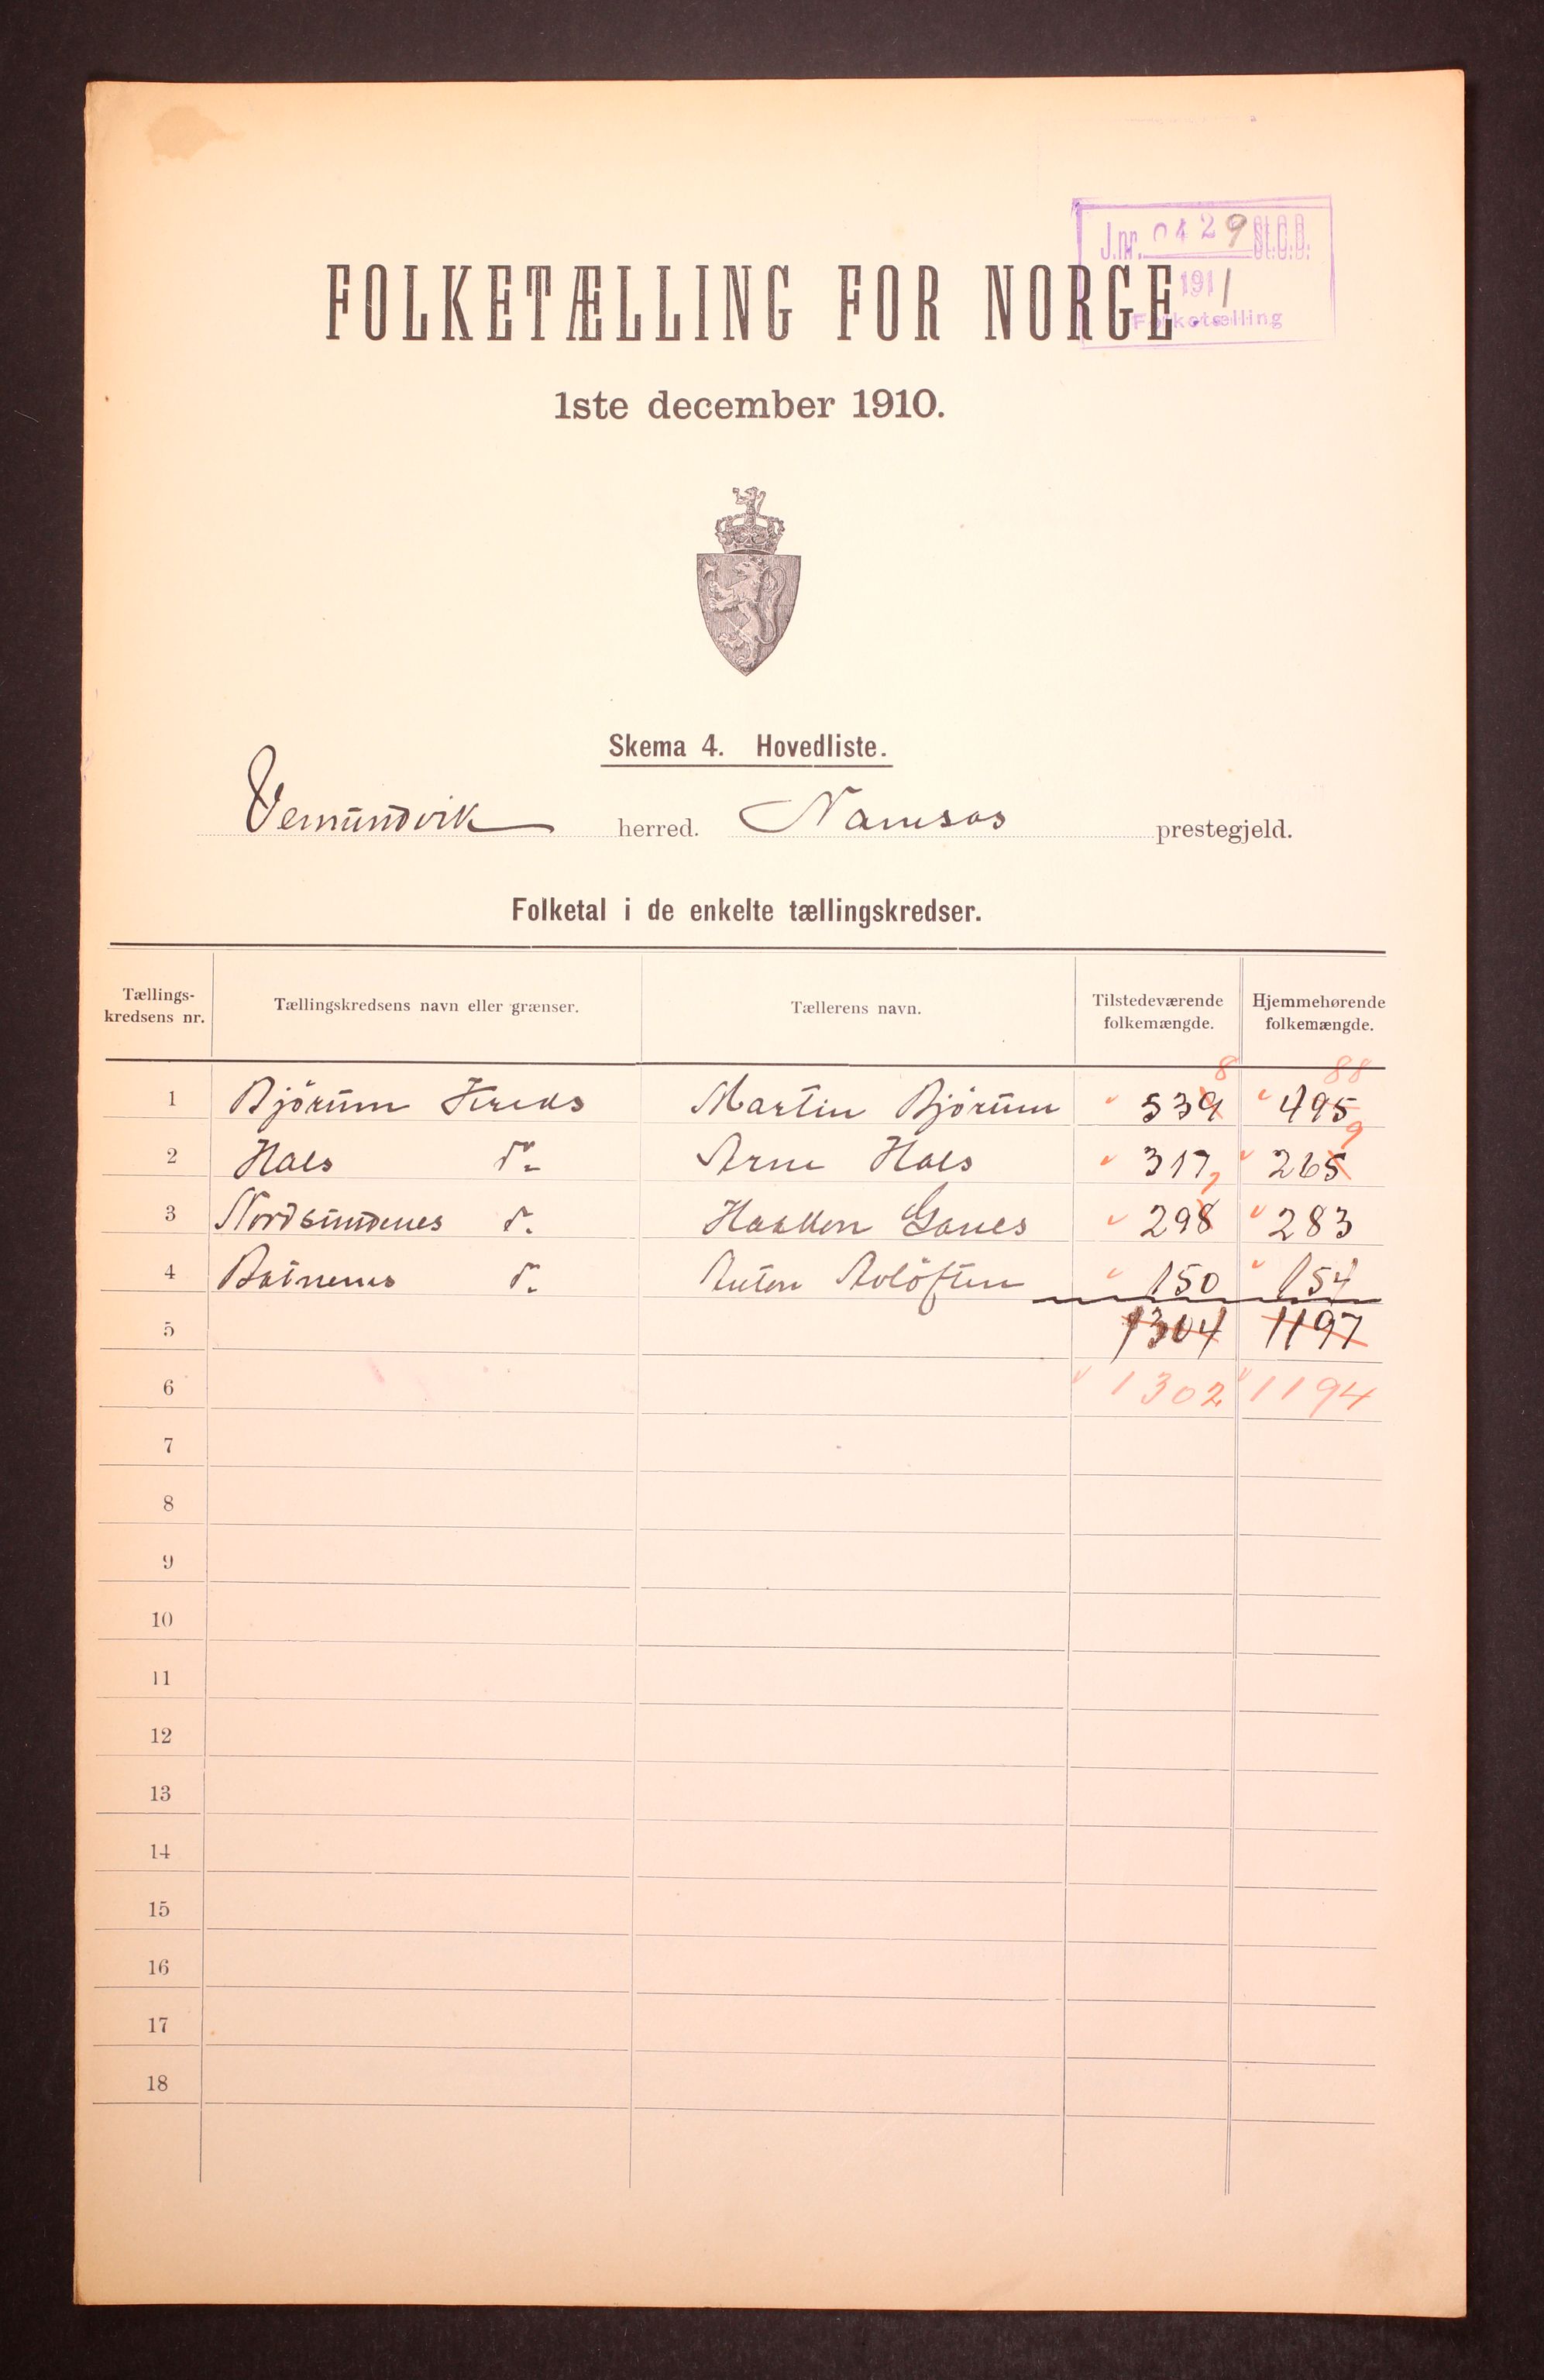 J.nr. 0429 St.C.B.
1911
Folketælling
FOLKETÆLLING FOR NORGE
1ste december 1910.
Skema 4. Hovedliste.
Vemundvik herred. Namsos prestegjeld.
Folketal i de enkelte tællingskredser.
Tællings-kredsens nr. Tællingskredsens navn eller grænser. Tællerens navn. Tilstedeværende folkemængde. Hjemmehørende folkemængde.
8 88
1 Bjørum Kreds Martin Bjørum 539 495
9
2 Hals d. Arne Hals 317 265
7
3 Nordsundenes d. Haakon Ganes 298 283
4 Botnenes d. Anton 150 154
5 1304 1197
6 1302 1194
7
8
9
10
11
12
13
14
15
16
17
18